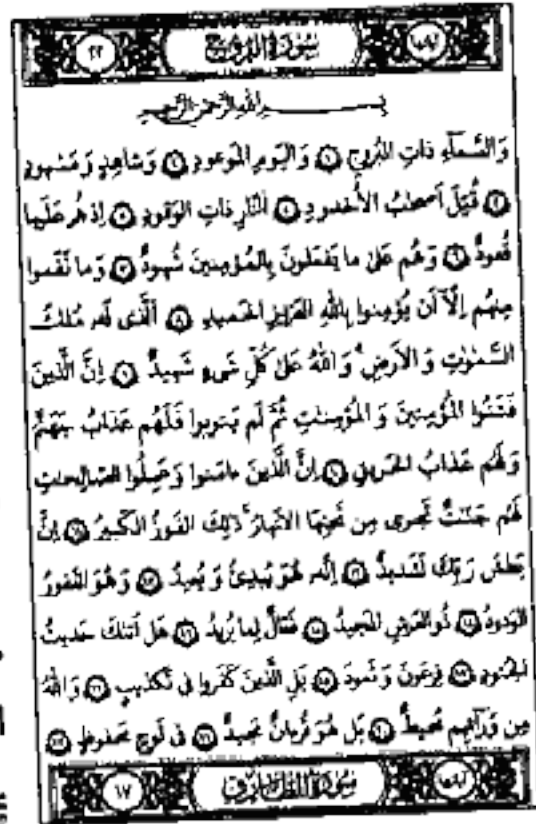 آياتها سورة البروج ٢٢
بِسْمِ اللَّهِ الرَّحْمَٰنِ الرَّحِيمِ
وَالسَّمَآءِ ذَاتِ الْبُرُوجِ ١ وَالْيَوْمِ الْمَوْعُودِ ٢ وَشَاهِدٍ وَمَشْهُودٍ
٣ قُتِلَ أَصْحَٰبُ الْأُخْدُودِ ٤ النَّارِ ذَاتِ الْوَقُودِ ٥ إِذْ هُمْ عَلَيْهَا
قُعُودٌ ٦ وَهُمْ عَلَىٰ مَا يَفْعَلُونَ بِالْمُؤْمِنِينَ شُهُودٌ ٧ وَمَا نَقَمُوا
مِنْهُمْ إِلَّآ أَن يُؤْمِنُوا بِاللَّهِ الْعَزِيزِ الْحَمِيدِ ٨ الَّذِى لَهُ مُلْكُ
السَّمَٰوَٰتِ وَالْأَرْضِ وَاللَّهُ عَلَىٰ كُلِّ شَىْءٍ شَهِيدٌ ٩ إِنَّ الَّذِينَ
فَتَنُوا الْمُؤْمِنِينَ وَالْمُؤْمِنَٰتِ ثُمَّ لَمْ يَتُوبُوا فَلَهُمْ عَذَابُ جَهَنَّمَ
وَلَهُمْ عَذَابُ الْحَرِيقِ ١٠ إِنَّ الَّذِينَ ءَامَنُوا وَعَمِلُوا الصَّالِحَٰتِ
لَهُمْ جَنَّٰتٌ تَجْرِى مِن تَحْتِهَا الْأَنْهَارُ ذَٰلِكَ الْفَوْزُ الْكَبِيرُ ١١ إِنَّ
بَطْشَ رَبِّكَ لَشَدِيدٌ ١٢ إِنَّهُ هُوَ يُبْدِئُ وَيُعِيدُ ١٣ وَهُوَ الْغَفُورُ
الْوَدُودُ ١٤ ذُو الْعَرْشِ الْمَجِيدُ ١٥ فَعَّالٌ لِمَا يُرِيدُ ١٦ هَلْ أَتَٰكَ حَدِيثُ
الْجُنُودِ ١٧ فِرْعَوْنَ وَثَمُودَ ١٨ بَلِ الَّذِينَ كَفَرُوا فِى تَكْذِيبٍ ١٩ وَاللَّهُ
مِن وَرَآئِهِم مُحِيطٌ ٢٠ بَلْ هُوَ قُرْءَانٌ مَجِيدٌ ٢١ فِى لَوْحٍ مَحْفُوظٍ ٢٢
آياتها سورة الطارق ١٧